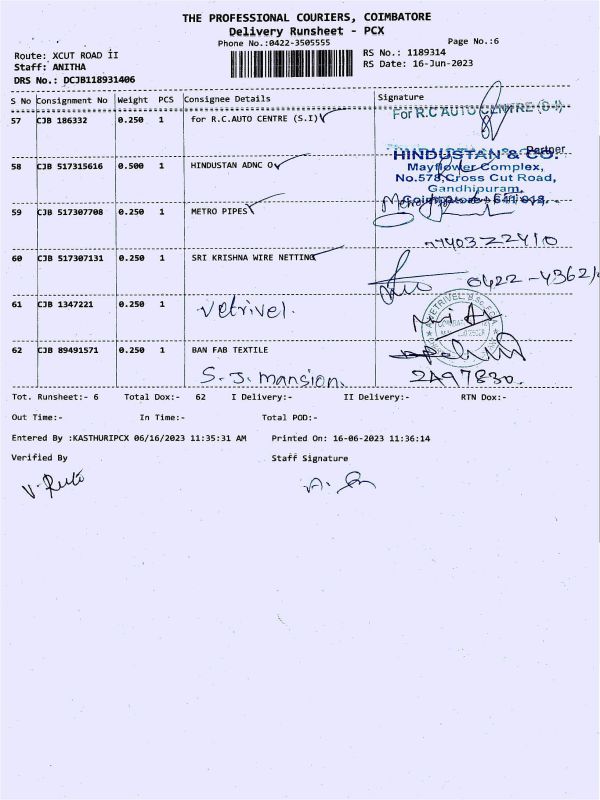 THE PROFESSIONAL COURIERS, COIMBATORE
Delivery Runsheet - PCX
Phone No.:0422-3505555
Page No.:6
Route: XCUT ROAD II
RS No.: 1189314
Staff: ANITHA
RS Date: 16-Jun-2023
DRS No.: DCJB118931406
S No Consignment No Weight PCS Consignee Details Signature
57 CJB 186332 0.250 1 for R.C.AUTO CENTRE (S.I)
For R.C AUTO CENTRE (S.I)
Partner
HINDUSTAN & CO.
58 CJB 517315616 0.500 1 HINDUSTAN ADNC O
Mayflower Complex,
No.578,Cross Cut Road,
Gandhipuram,
59 CJB 517307708 0.250 1 METRO PIPES
60 CJB 517307131 0.250 1 SRI KRISHNA WIRE NETTING
61 CJB 1347221 0.250 1 Vetrivel.
62 CJB 89491571 0.250 1 BAN FAB TEXTILE
S.J. mansion.
2A97830.
Tot. Runsheet:- 6 Total Dox:- 62 I Delivery:- II Delivery:- RTN Dox:-
Out Time:- In Time:- Total POD:-
Entered By :KASTHURIPCX 06/16/2023 11:35:31 AM Printed On: 16-06-2023 11:36:14
Verified By Staff Signature